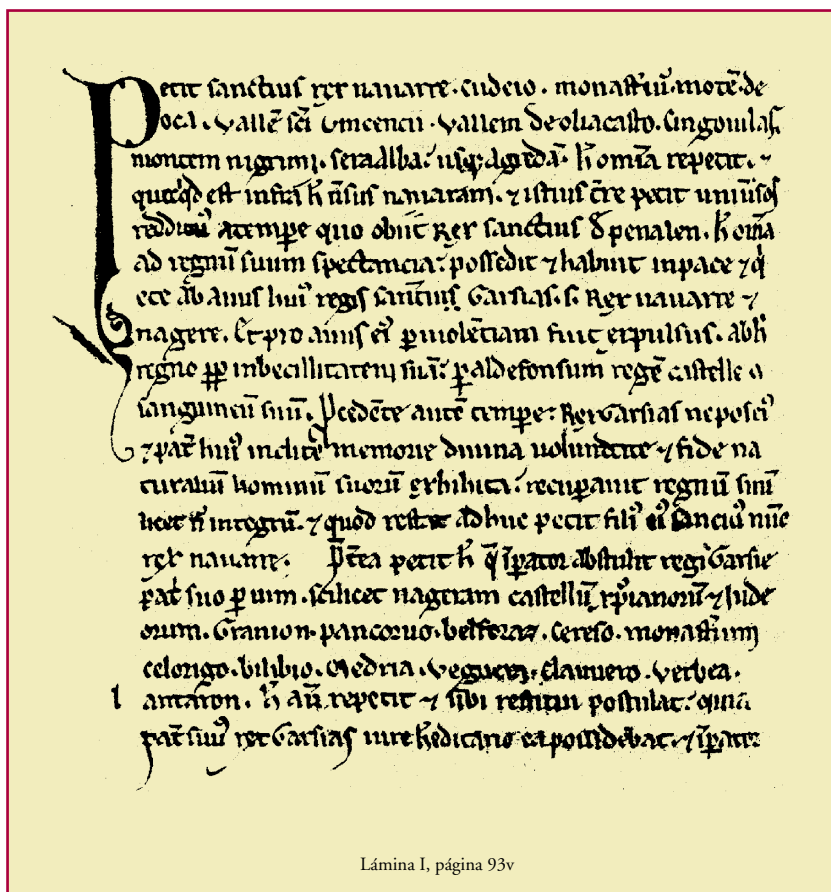 Petit sanctius rex nauarre. cudeio. monastiũ. motẽ. de
oca. Vallẽ sc̃i Vincencii. Vallem de oliacasto. Cingouilas,
montem nigrum. seralba. usq; agredã. h̃ omĩa repetit. ⁊
quicq̃d est infra h̃ ũsus nauaram. ⁊ istius t̃re petit uniũsos
redditus a tempe quo obiit Rex sanctius d̃ penalen. h̃ omĩa
ad regnũ suum spectancia. possedit ⁊ habuit in pace ⁊ q̃
ete ab auus hui᷒ regis sanctius, Garsias. s. Rex nauarre ⁊
nagere. Et pro auus ei᷒ ꝑ uiolẽtiam fuit expulsus. ab h̃
regno ꝓꝑ inbecillitatem suã. ꝑ aldefonsum regẽ castelle
sanguineũ suũ. Pcedẽte autẽ tempe. Rex Garsias nepos ei᷒
⁊ pat̃ hui᷒ inclite memorie diuina uoluntate ⁊ fide na
turaliũ hominũ suorũ exhibita. recuperauit regnũ suũ
licet ñ integrũ. ⁊ quod restat adhuc petit fili᷒ ei᷒ Sanci᷒ nũc
rex nauarre. P̃tea petit h̃ q̃ ĩpator abstulit regi Garsie
pat̃ suo ꝑ uim. scilicet nageram castellũ, xp̃ianorũ ⁊ Iude
orum. Granion. pancoruo. belforaz. Cereso. monastiũ
celorigo. bilibio. Medria. Veguera. Clauiero. Verbea.
l antaron. h̃ aũ. repetit ⁊ sibi restitui postulat. quia
pat̃ suu᷒ rex Garsias iure h̃editario ea possidebat. ⁊ ĩpator
Lámina I, página 93v